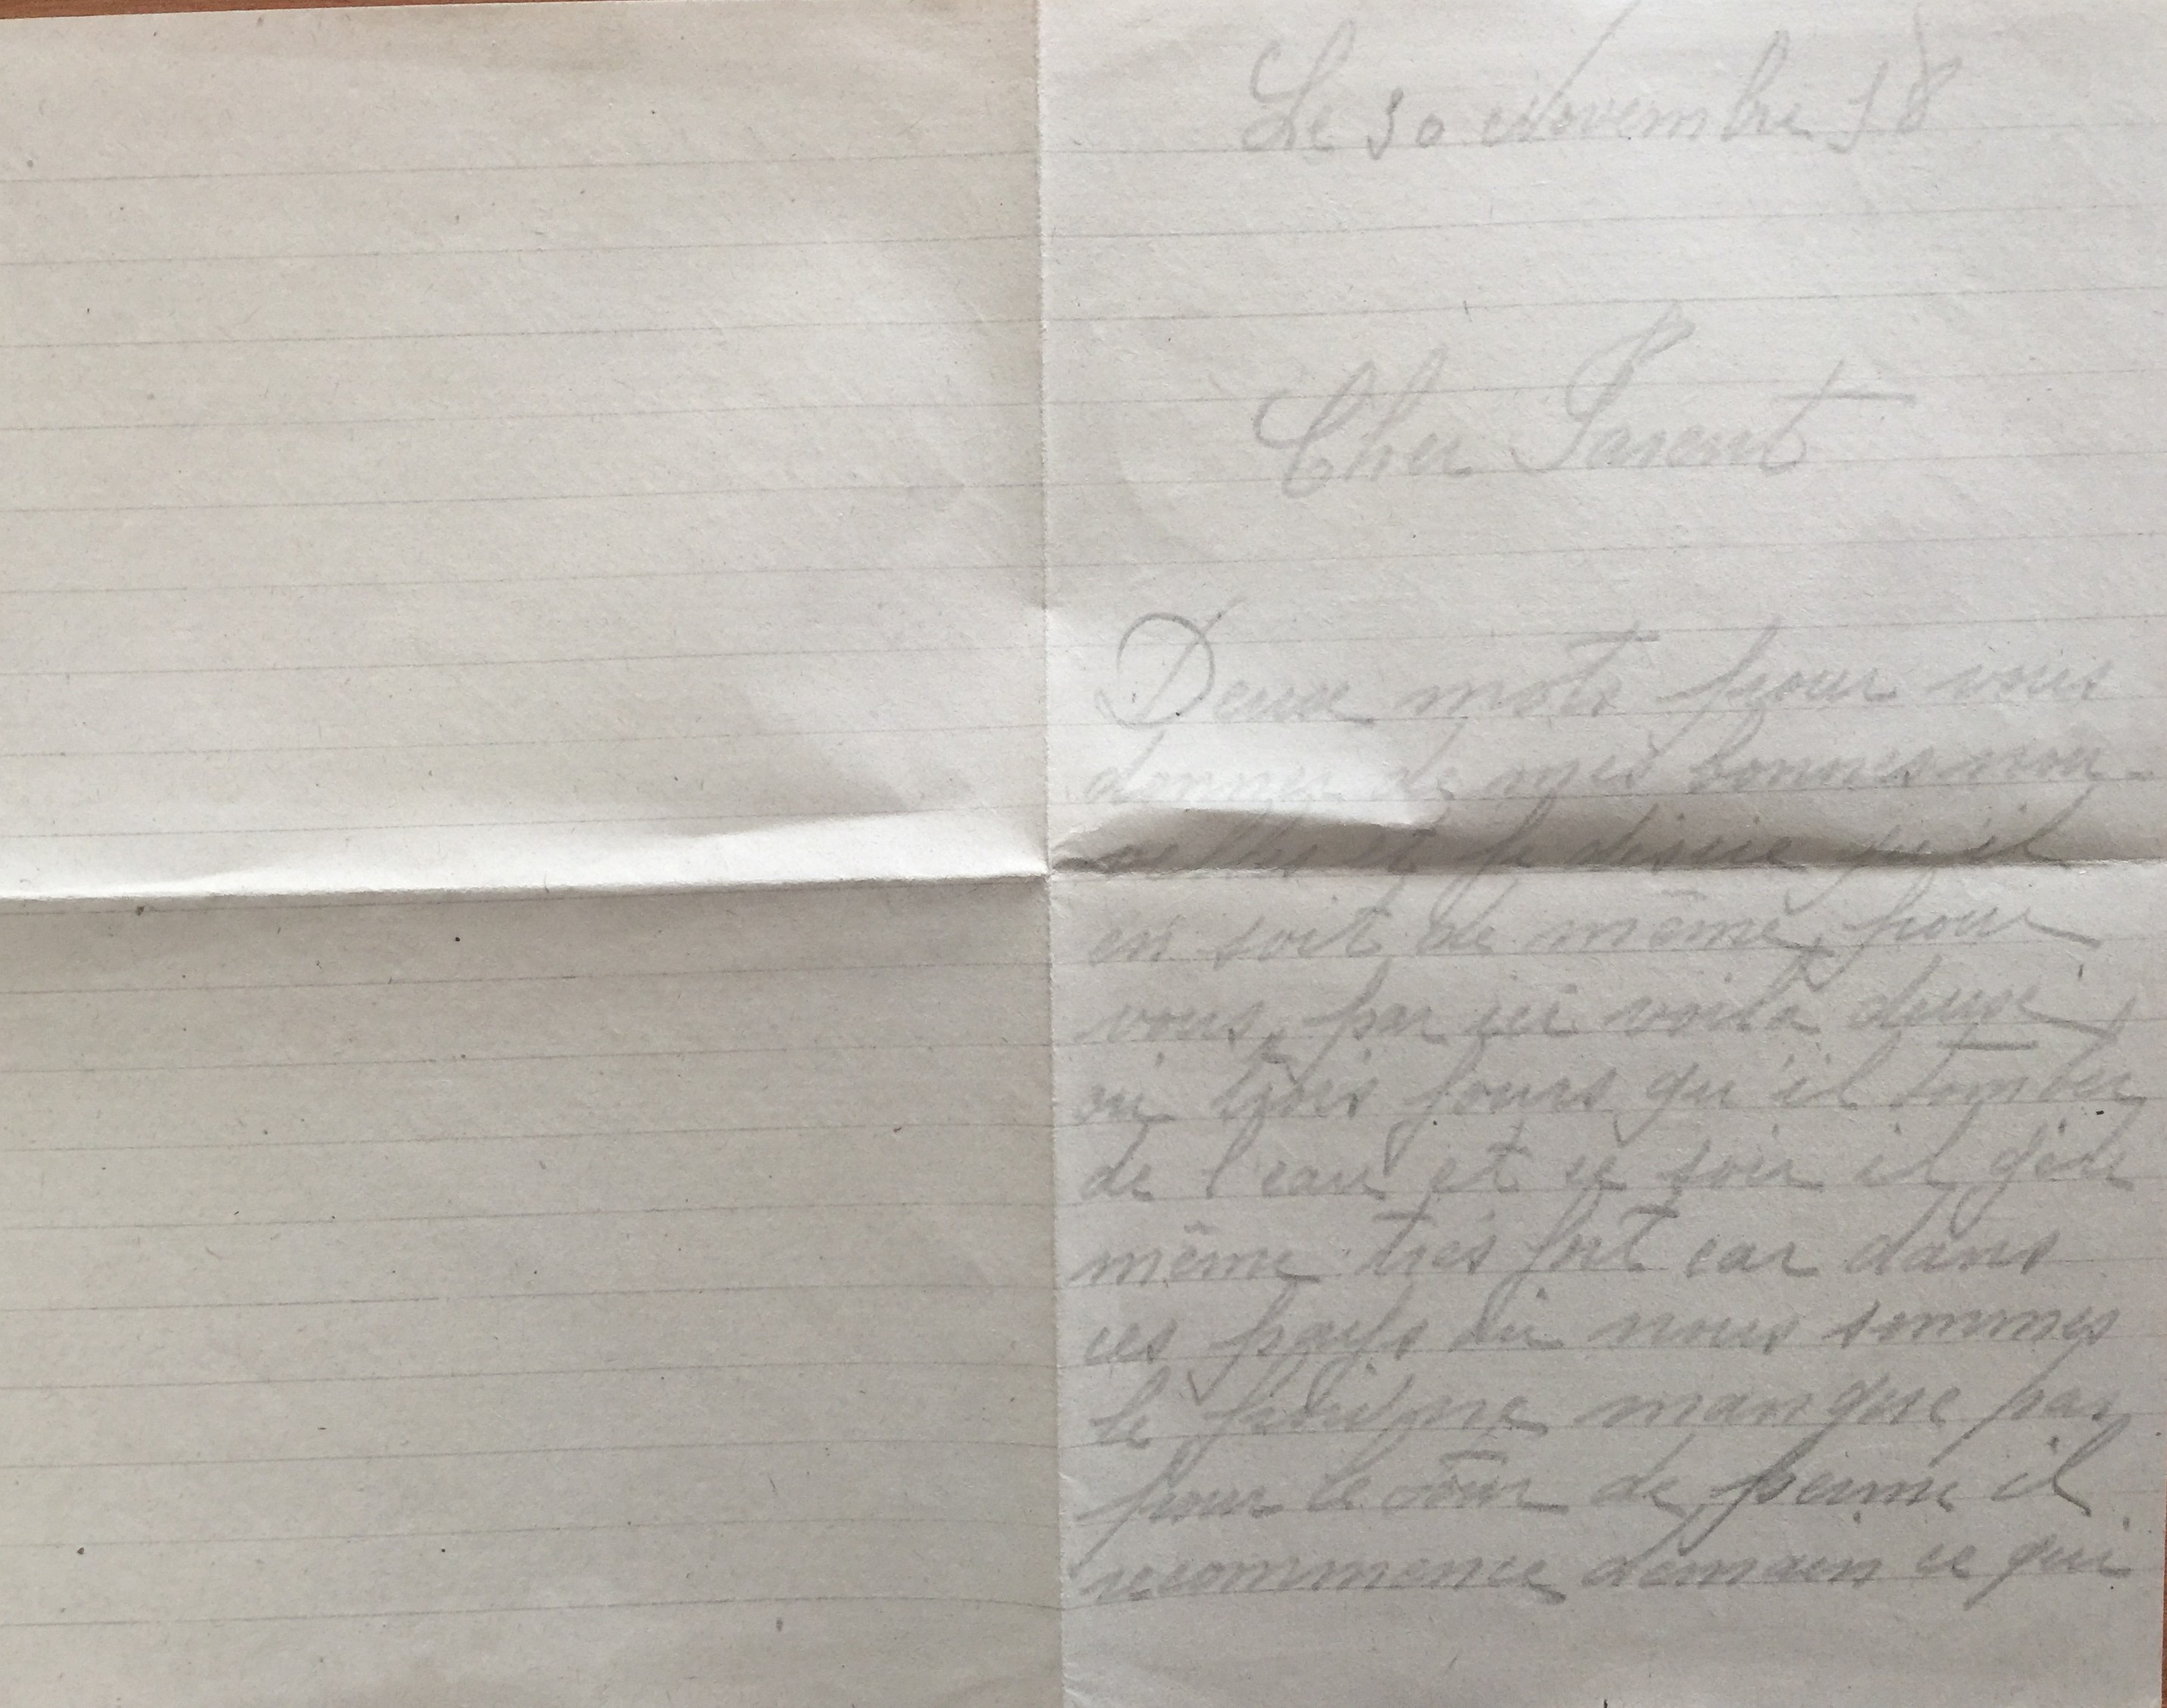 Le 30 Novembre 18
Cher Parent
Deux mots pour vous
donner de mes bonnes nou-
velles et je désire qu'il
en soit de même pour
vous, par ici voila deux
ou trois jours qu'il tombe
de l'eau et ce soir il gèle
même très fort car dans
ces pays ou nous sommes
le manque pas
pour le de il
recommence demain ce qui